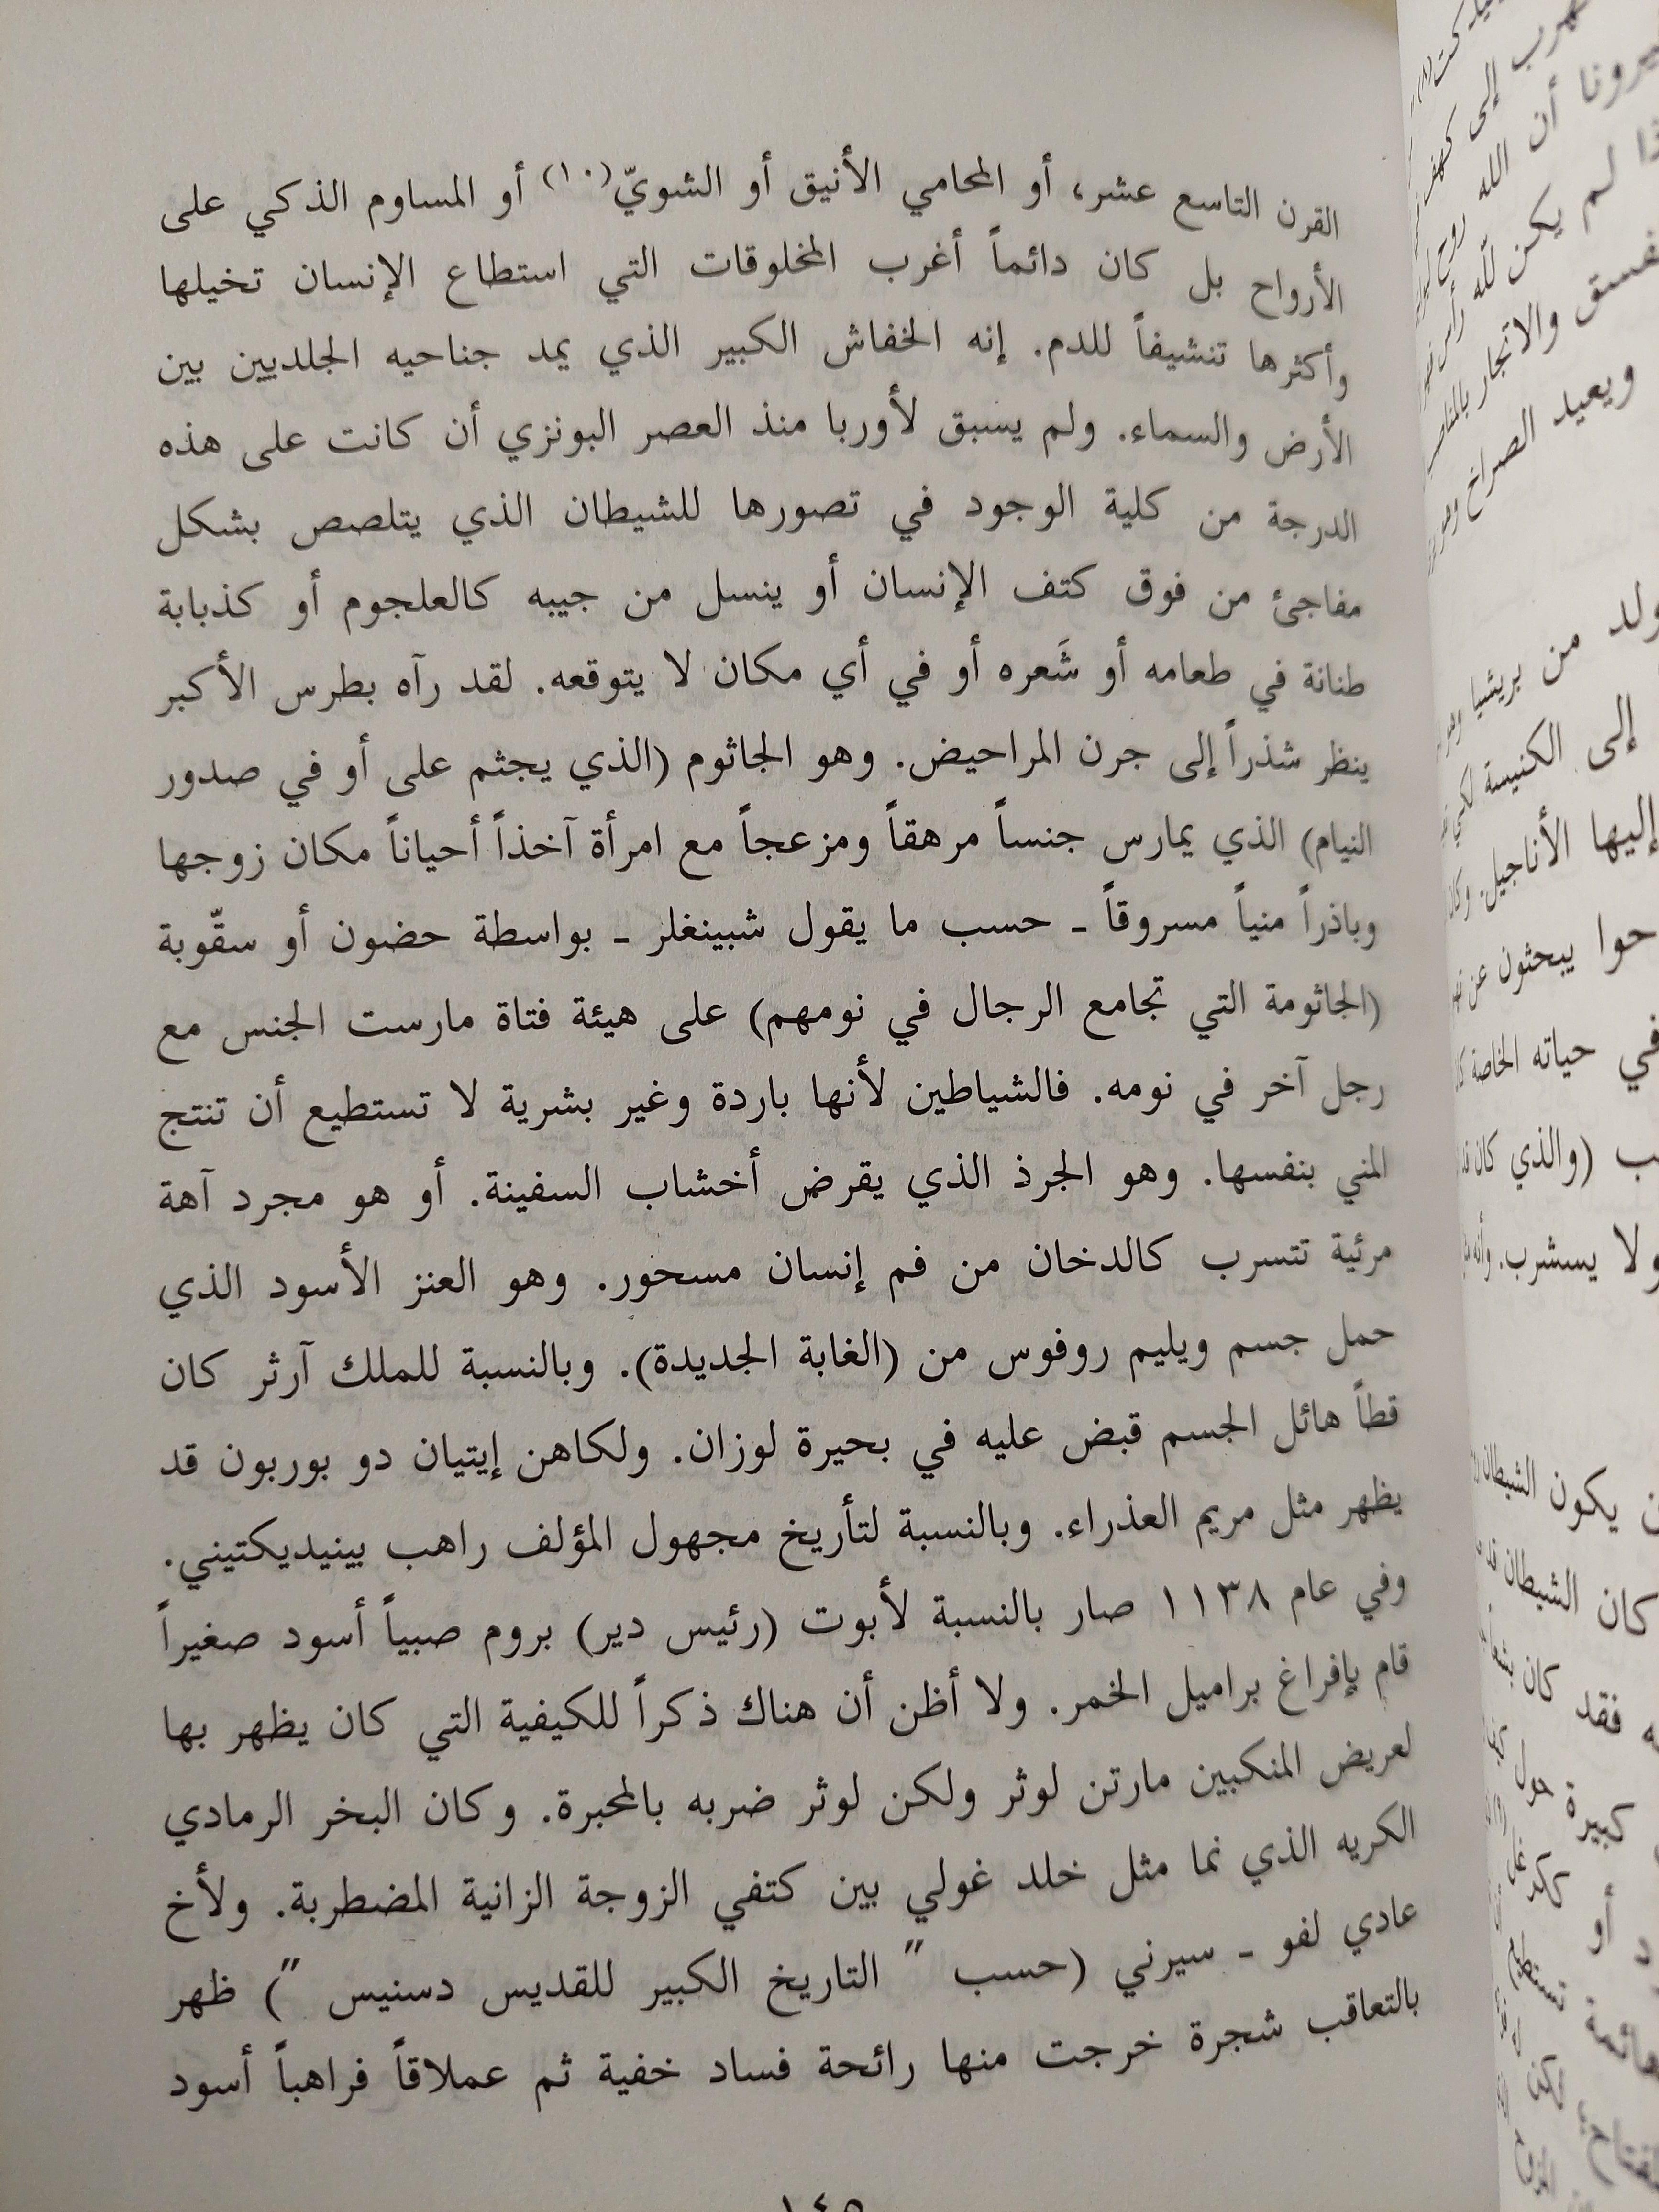 القرن التاسع عشر، أو المحامي الأنيق أو الشويّ(١٠) أو المساوم الذكي على
الأرواح بل كان دائماً أغرب المخلوقات التي استطاع الإنسان تخيلها
وأكثرها تنشيفاً للدم. إنه الخفاش الكبير الذي يمد جناحيه الجلديين بين
الأرض والسماء. ولم يسبق لأوربا منذ العصر البونزي أن كانت على هذه
الدرجة من كلية الوجود في تصورها للشيطان الذي يتلصص بشكل
مفاجئ من فوق كتف الإنسان أو ينسل من جيبه كالعلجوم أو كذبابة
طنانة في طعامه أو شَعره أو في أي مكان لا يتوقعه. لقد رآه بطرس الأكبر
ينظر شذراً إلى جرن المراحيض. وهو الجاثوم (الذي يجثم على أو في صدور
النيام) الذي يمارس جنساً مرهقاً ومزعجاً مع امرأة آخذاً أحياناً مكان زوجها
وباذراً منياً مسروقاً ـ حسب ما يقول شبينغلر ـ بواسطة حضون أو سقّوبة
(الجاثومة التي تجامع الرجال في نومهم) على هيئة فتاة مارست الجنس مع
رجل آخر في نومه. فالشياطين لأنها باردة وغير بشرية لا تستطيع أن تنتج
المني بنفسها. وهو الجرذ الذي يقرض أخشاب السفينة. أو هو مجرد آهة
مرئية تتسرب كالدخان من فم إنسان مسحور. وهو العنز الأسود الذي
حمل جسم ويليم روفوس من (الغابة الجديدة). وبالنسبة للملك آرثر كان
قطاً هائل الجسم قبض عليه في بحيرة لوزان. ولكاهن إيتيان دو بوربون قد
يظهر مثل مريم العذراء. وبالنسبة لتأريخ مجهول المؤلف راهب بينيديكتيني.
وفي عام ١١٣٨ صار بالنسبة لأبوت (رئيس دير) بروم صبياً أسود صغيراً
قام بإفراغ براميل الخمر. ولا أظن أن هناك ذكراً للكيفية التي كان يظهر بها
لعريض المنكبين مارتن لوثر ولكن لوثر ضربه بالمحبرة. وكان البخر الرمادي
الكريه الذي نما مثل خلد غولي بين كتفي الزوجة الزانية المضطربة. ولأخ
عادي لفو ـ سيرني (حسب " التاريخ الكبير للقديس دسنيس ") ظهر
بالتعاقب شجرة خرجت منها رائحة فساد خفية ثم عملاقاً فراهباً أسود
١٤٥